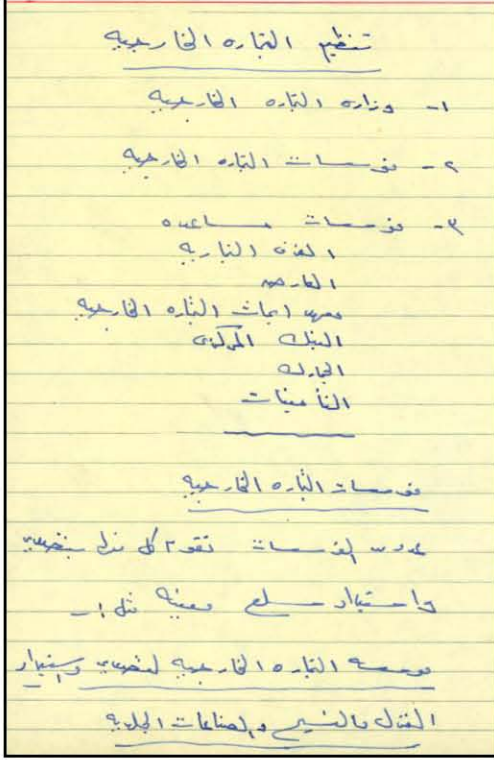 تنظيم التجاره الخارجيه
١- وزاره التجاره الخارجيه
٢- مؤسسات التجاره الخارجيه
٣- مؤسسات مساعده
الغرف التجاريه
المعارض
معهد ابحاث التجاره الخارجيه
البنك المركزى
الجمارك
التأمينات
مؤسسات التجاره الخارجيه
عدد من المؤسسات تقوم كل منها بتصدير
واستيراد سلع معينه مثل :-
مؤسسه التجاره الخارجيه لتصدير واستيراد
الغزل والنسيج والصناعات الجلديه